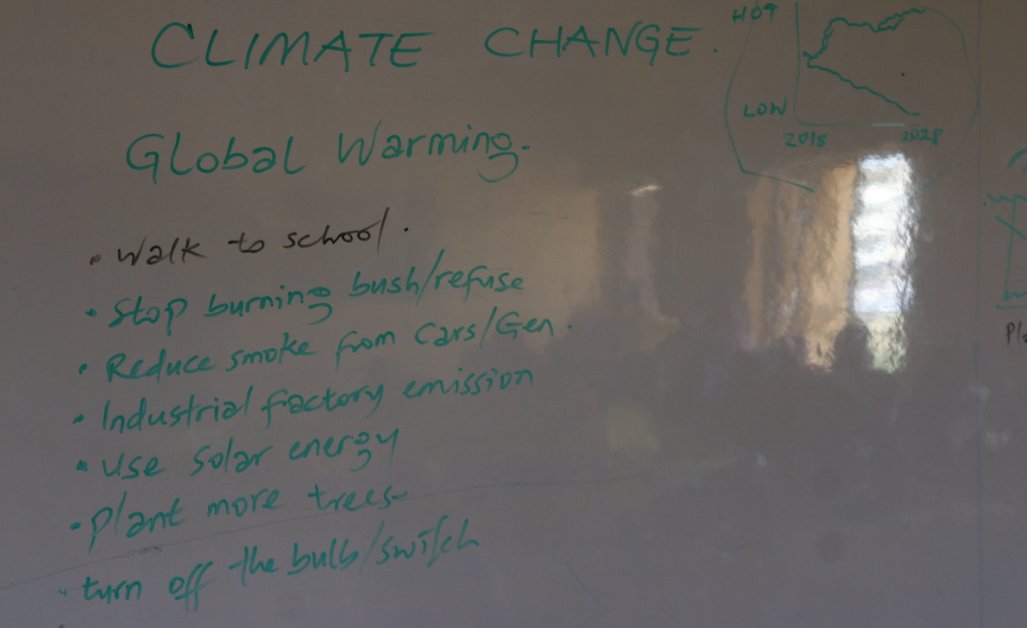 CLIMATE CHANGE.
HOT
LOW
2015 2028
Global Warming.
• Walk to school.
• Stop burning bush/refuse
• Reduce smoke from Cars/Gen.
• Industrial factory emission
• Use Solar energy
• Plant more trees
• turn off the bulb/switch